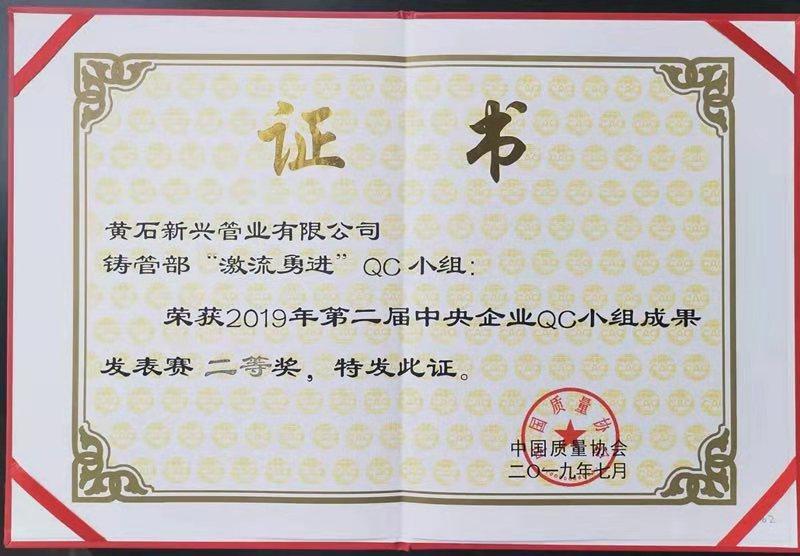 证 书
黄石新兴管业有限公司
铸管部“激流勇进”QC小组：
荣获2019年第二届中央企业QC小组成果
发表赛 二等奖，特发此证。
中国质量协会
中国质量协会
二〇一九年七月